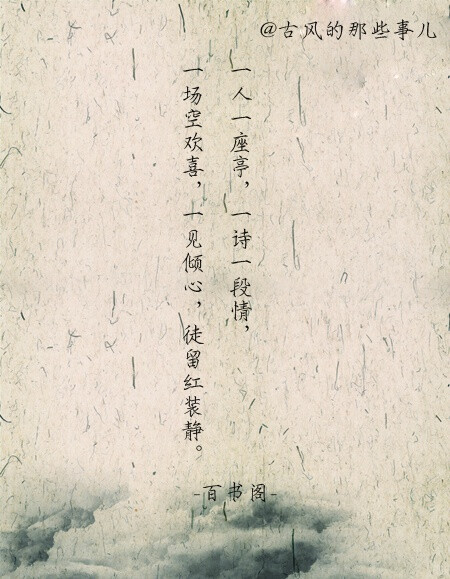 @古风的那些事儿
一人一座亭，一诗一段情，
一场空欢喜，一见倾心，徒留红装静。
-百书阁-